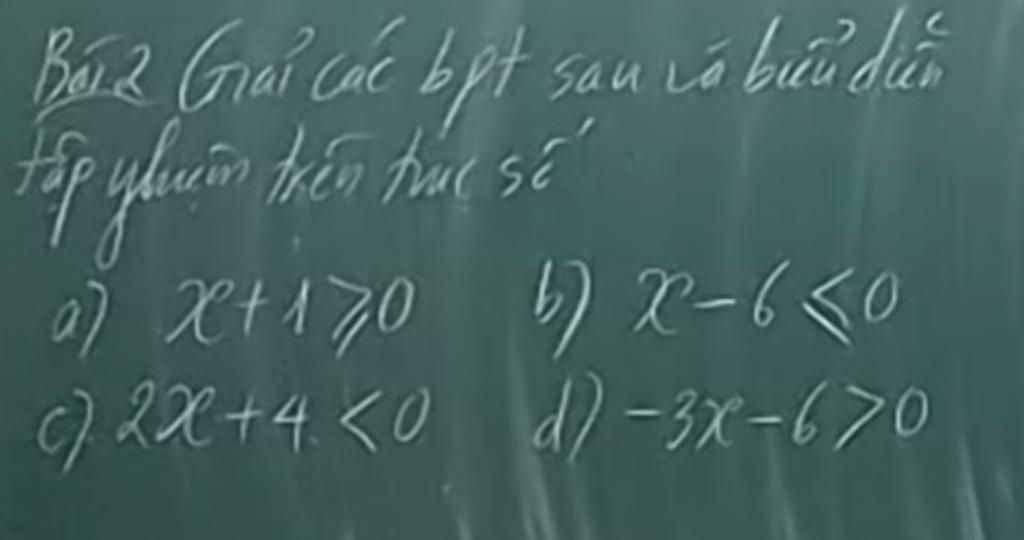 Bài 2 Giải các bpt sau và biểu diễn
tập nghiệm trên trục số
a) x+1⩾0 b) x-6⩽0
c) 2x+4<0 d) -3x-6>0